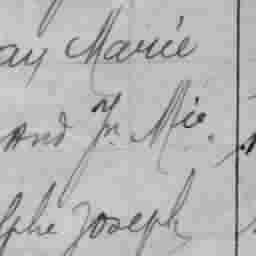 ay Marie
and Jn. Mie.
lphe Joseph